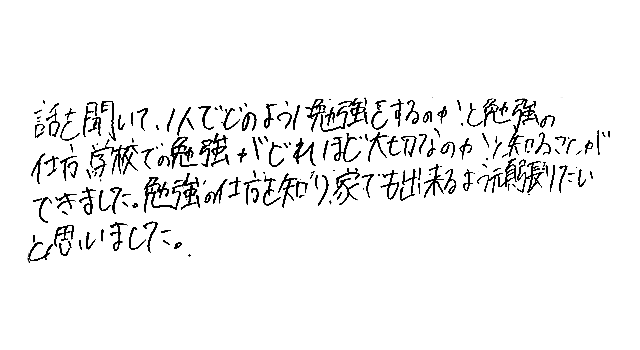 話を聞いて、1人でどのように勉強をするのか、と勉強の
仕方、学校での勉強がどれほど大切なのかを知ることが
できました。勉強の仕方を知り、家でも出来るよう頑張りたい
と思いました。